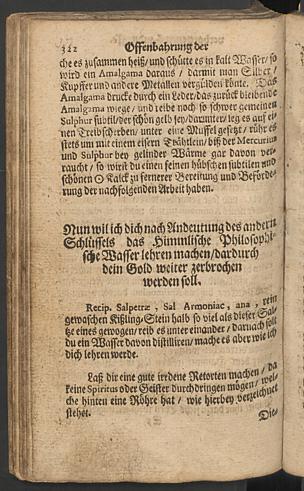 322 Offenbahrung der
che es zusammen heiß/ und schütte es in kalt Wasser/ so
wird ein Amalgama daraus / darmit man Silber /
Kupffer und andere Metallen vergülden könte. Das
Amalgama drucke durch ein Leder/ das zurück bleibende
Amalgama wiege / und reibe noch so schwer gemeinen
Sulphur subtil/ der schön gelb sey/ darunter/ leg es auf ei-
nen Treibscherben/ unter eine Muffel gesetzt / rühr es
stets um mit einem eisern Drähtlein/ biß der Mercurius
und Sulphur bey gelinder Wärme gar davon ver-
raucht/ so wirst du einen feinen hübschen subtilen und
schönen ☉ Kalck zu fernerer Bereitung und Beförde-
rung der nachfolgenden Arbeit haben.
Nun wil ich dich nach Andeutung des andern
Schlüssels das Himmlische Philosophi-
sche Wasser lehren machen/ dardurch
dein Gold weiter zerbrochen
werden soll.
Recip. Salpetræ, Sal Armoniac, ana, rein
gewaschen Kißling-Stein halb so viel als dieser Sal-
tze eines gewogen/ reib es unter einander / darnach solt
du ein Wasser davon distilliren/ mache es aber wie ich
dich lehren werde.
Laß dir eine gute irrdene Retorten machen / da
keine Spiritus oder Geister durchdringen mögen/ wel-
che hinten eine Röhre hat / wie hierbey verzeichnet
stehet.
Die-